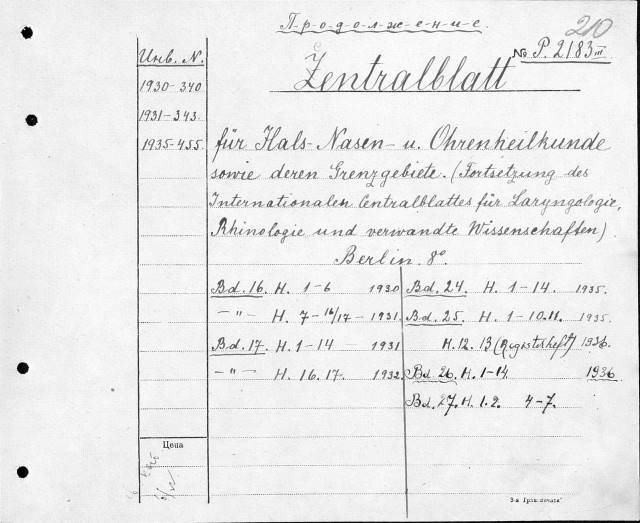 Продолжение.
210
Инв. N.
№ P. 2183 III
Zentralblatt
1930-340
1931-343.
1935-455.
für Hals-Nasen- u. Ohrenheilkunde
sowie deren Grenzgebiete. (Fortsetzung des
Internationalen Centralblattes für Laryngologie,
Rhinologie und verwandte Wissenschaften)
Berlin. 8°.
Bd. 16. H. 1-6 1930
-"- H. 7-16/17 - 1931.
Bd. 17. H. 1-14 - 1931
-"- H. 16. 17. 1932.
Bd. 24. H. 1-14. 1935.
Bd. 25. H. 1-10. 11. 1935.
H. 12. 13 (Registerheft) 1936.
Bd. 26. H. 1-14. 1936
Bd. 27. H. 1. 2. 4-7.
Цена